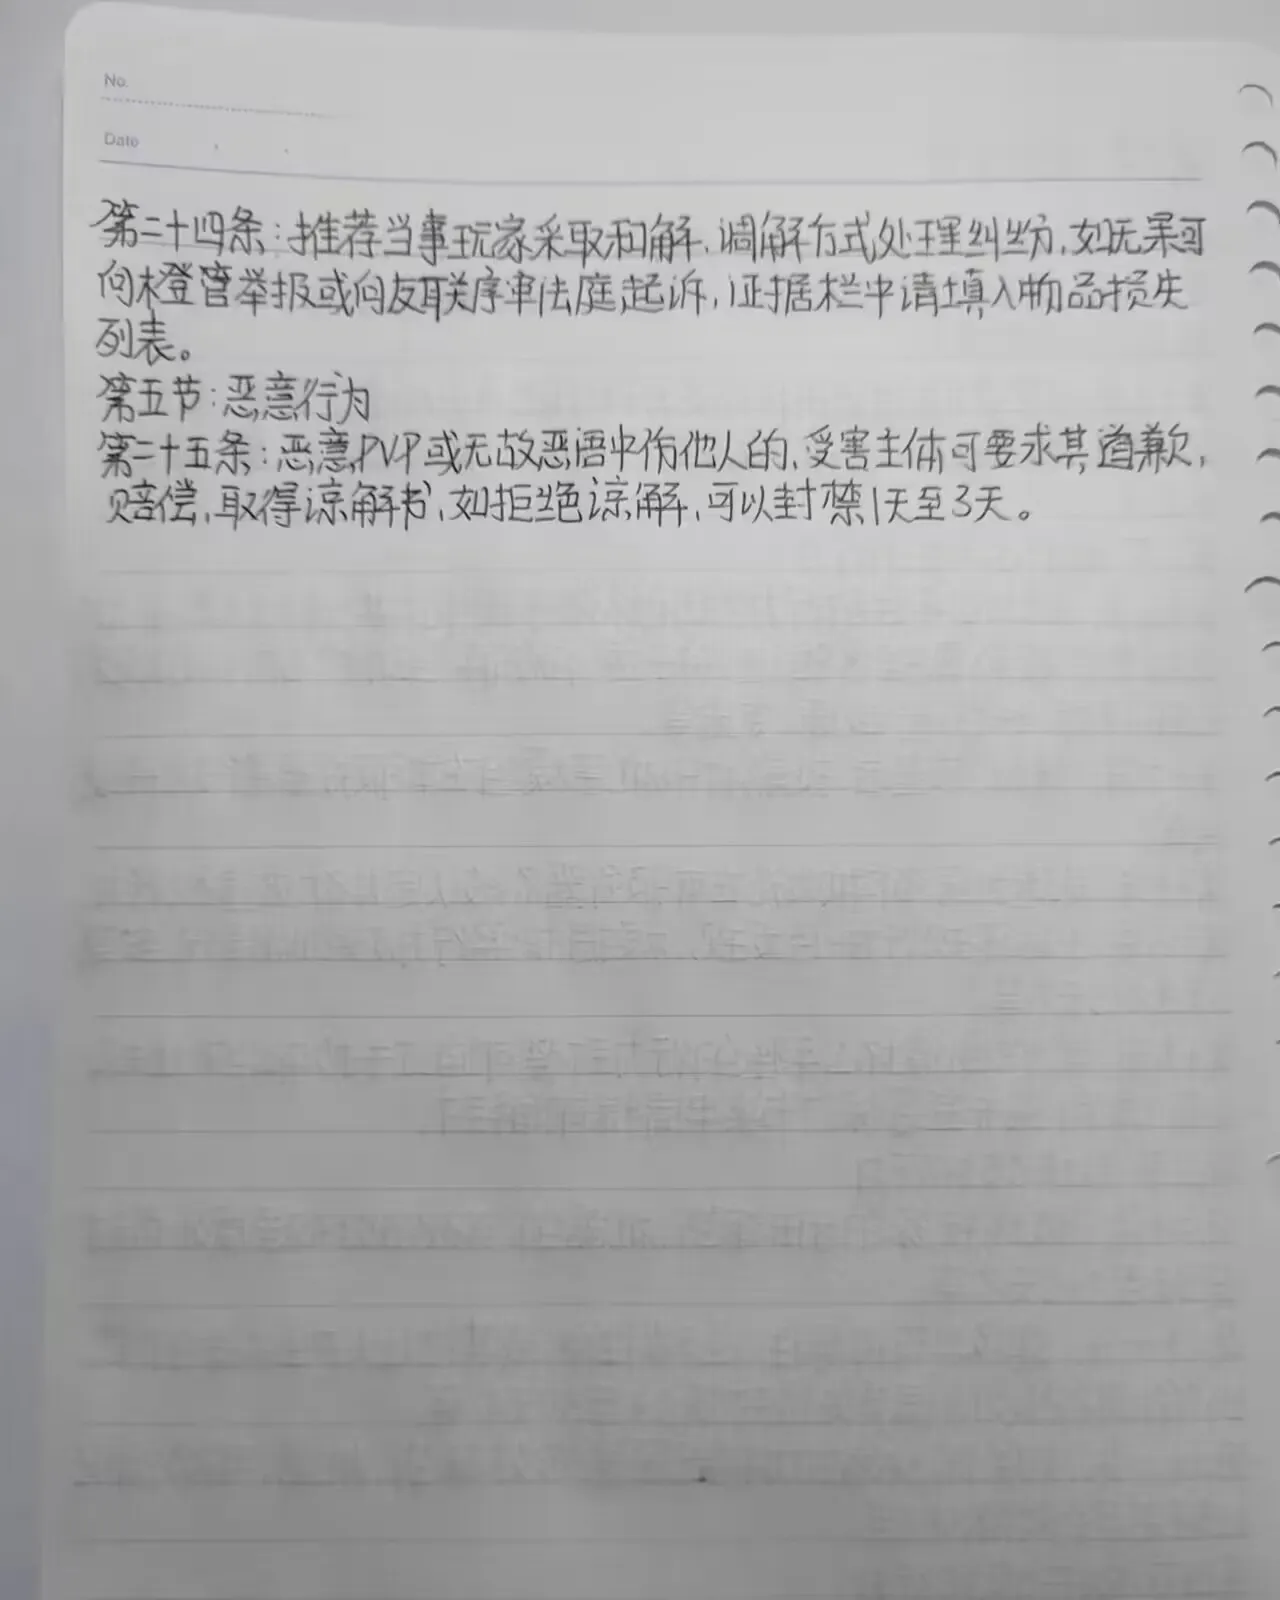 No.
Date
第二十四条：推荐当事玩家采取和解、调解方式处理纠纷，如无果可
向橙管举报或向友联序审法庭起诉，证据栏中请填入物品损失
列表。
第五节：恶意行为
第二十五条：恶意PVP或无故恶语中伤他人的，受害主体可要求其道歉，
赔偿，取得谅解书，如拒绝谅解，可以封禁1天至3天。